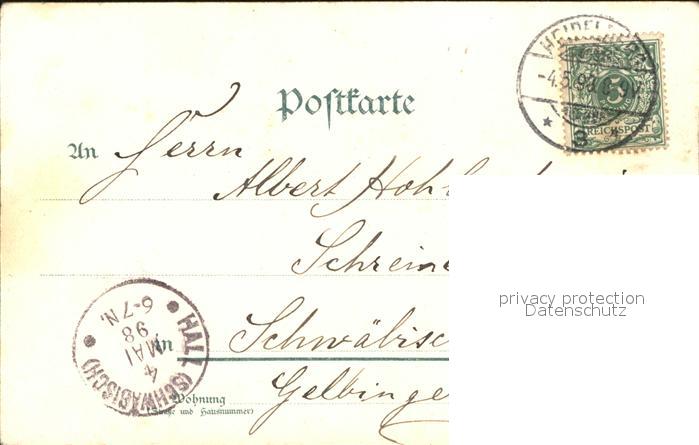 Postkarte
An Herrn
Albert Hohl
Schreine
in Schwäbisc
Gelbinge
Wohnung
(Straße und Hausnummer)
HEIDELBERG
-4.5.98. 8-9V.
* 3
5
REICHSPOST
HALL (SCHWÄBISCH)
4
MAI
98
6-7N.
privacy protection
Datenschutz